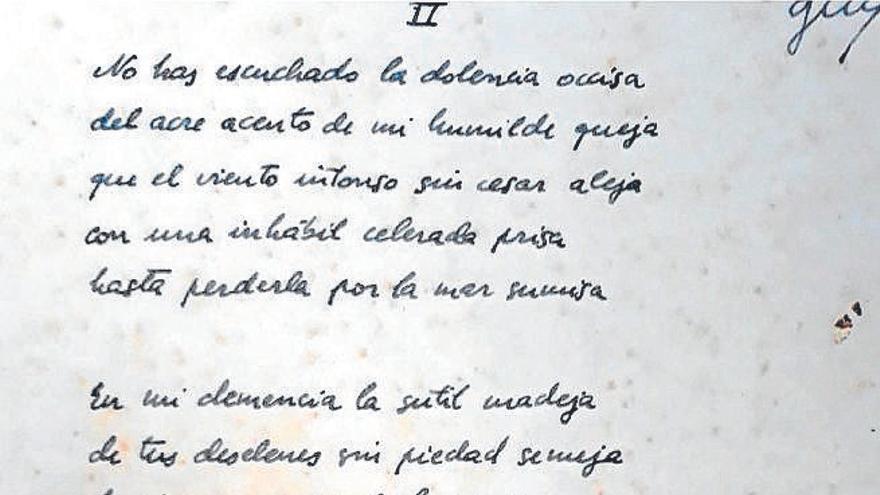 II
No has escuchado la dolencia occisa
del acre acento de mi humilde queja
que el viento intonso sin cesar aleja
con una inhábil celerada prisa
hasta perderla por la mar sumisa
En mi demencia la sutil madeja
de tus desdenes sin piedad semeja